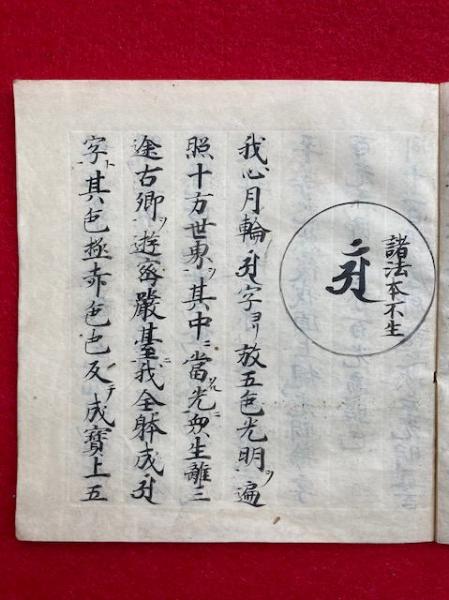 諸法本不生
我心月輪ノ字ヨリ放五色光明ヲ遍
照十方世界ヲ其中ニ當光ニ衆生離三
途古郷ヲ遊密嚴臺ニ我全躰成
字ト其色極赤色也反テ成寶上五